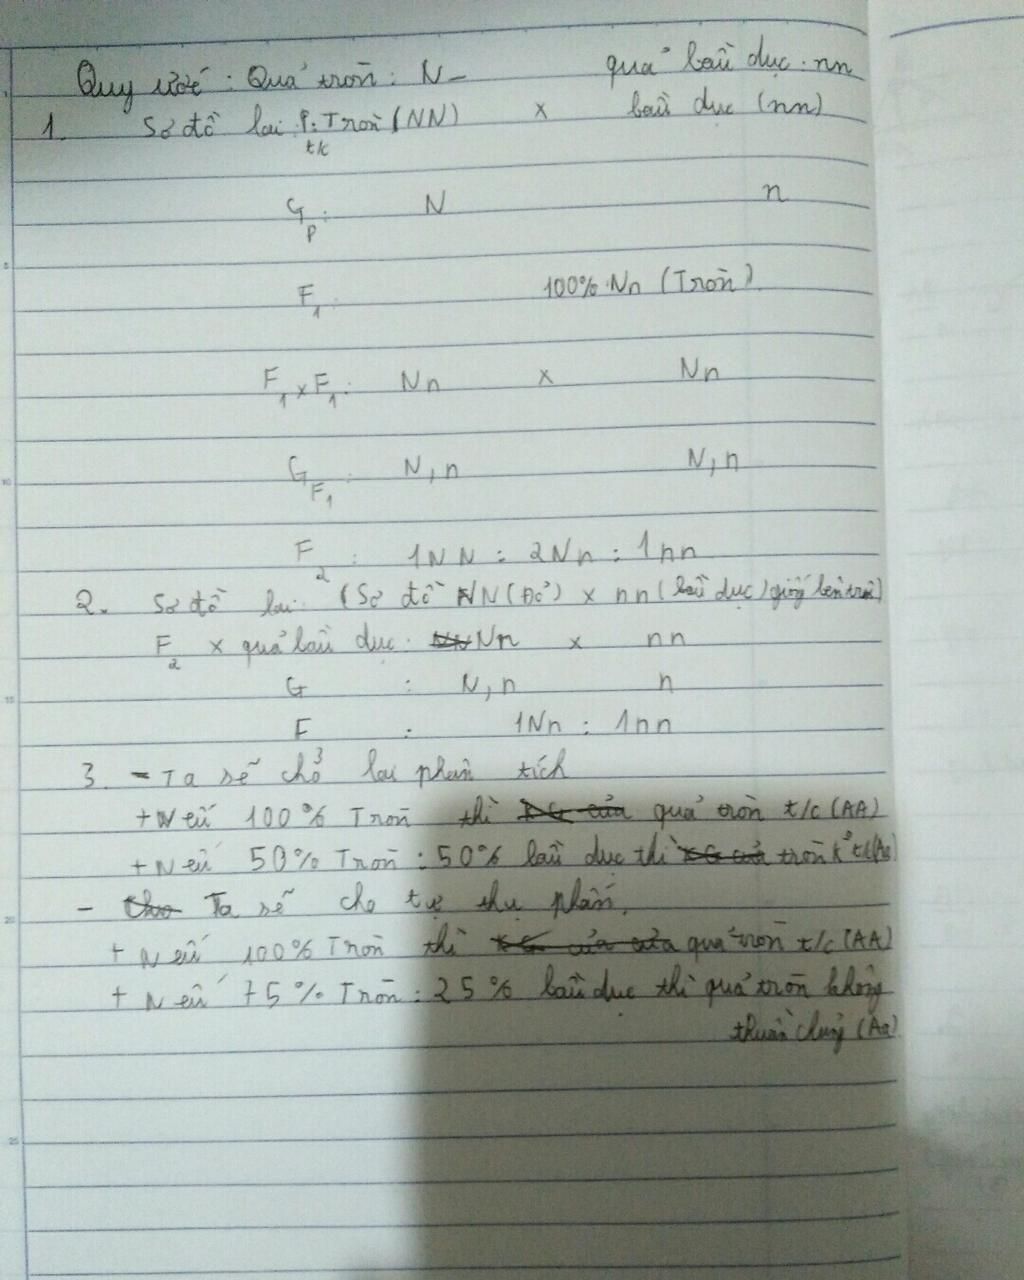 Quy ước: Quả tròn: N- quả bầu dục: nn
1. Sơ đồ lai P: Tròn (NN) x bầu dục (nn)
t/c
G P: N n
F1: 100% Nn (Tròn).
F1 x F1: Nn x Nn
G F1: N, n N, n
F2: 1NN : 2Nn : 1nn
2. Sơ đồ lai: (Sơ đồ NN (Đỏ) x nn (bầu dục) giống bên trên)
F2 x quả bầu dục: Nn x nn
G : N, n n
F : 1Nn : 1nn
3. - Ta sẽ cho lai phân tích
+ Nếu 100% Tròn thì quả tròn t/c (AA)
+ Nếu 50% Tròn : 50% bầu dục thì tròn k° t/c (Aa)
- Ta sẽ cho tự thụ phấn.
+ Nếu 100% Tròn thì quả tròn t/c (AA)
+ Nếu 75% Tròn : 25% bầu dục thì quả tròn không
thuần chủng (Aa)
5
10
15
20
25